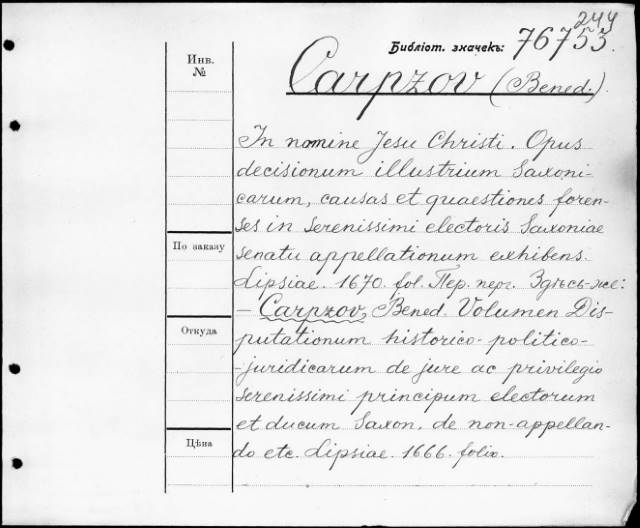 244
Библіот. значекъ: 76753.
Инв. №
Carpzov (Bened.).
In nomine Jesu Christi. Opus
decisionum illustrium Saxoni-
carum, causas et quaestiones foren-
ses in serenissimi electoris Saxoniae
По заказу
senatu appellationum exhibens.
Lipsiae. 1670. fol. Пер. перг. Здѣсь-же:
— Carpzov, Bened. Volumen Dis-
Откуда
putationum historico-politico-
-juridicarum de jure ac privilegio
serenissimi principum electorum
et ducum Saxon. de non-appellan-
Цѣна
do etc. Lipsiae. 1666. folio.